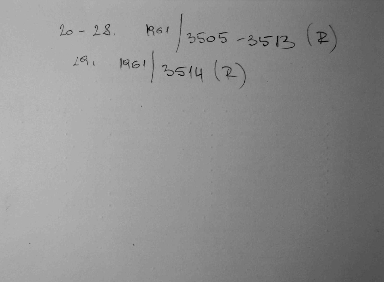 20-28. 1961/3505-3513 (R)
29. 1961/3514 (R)